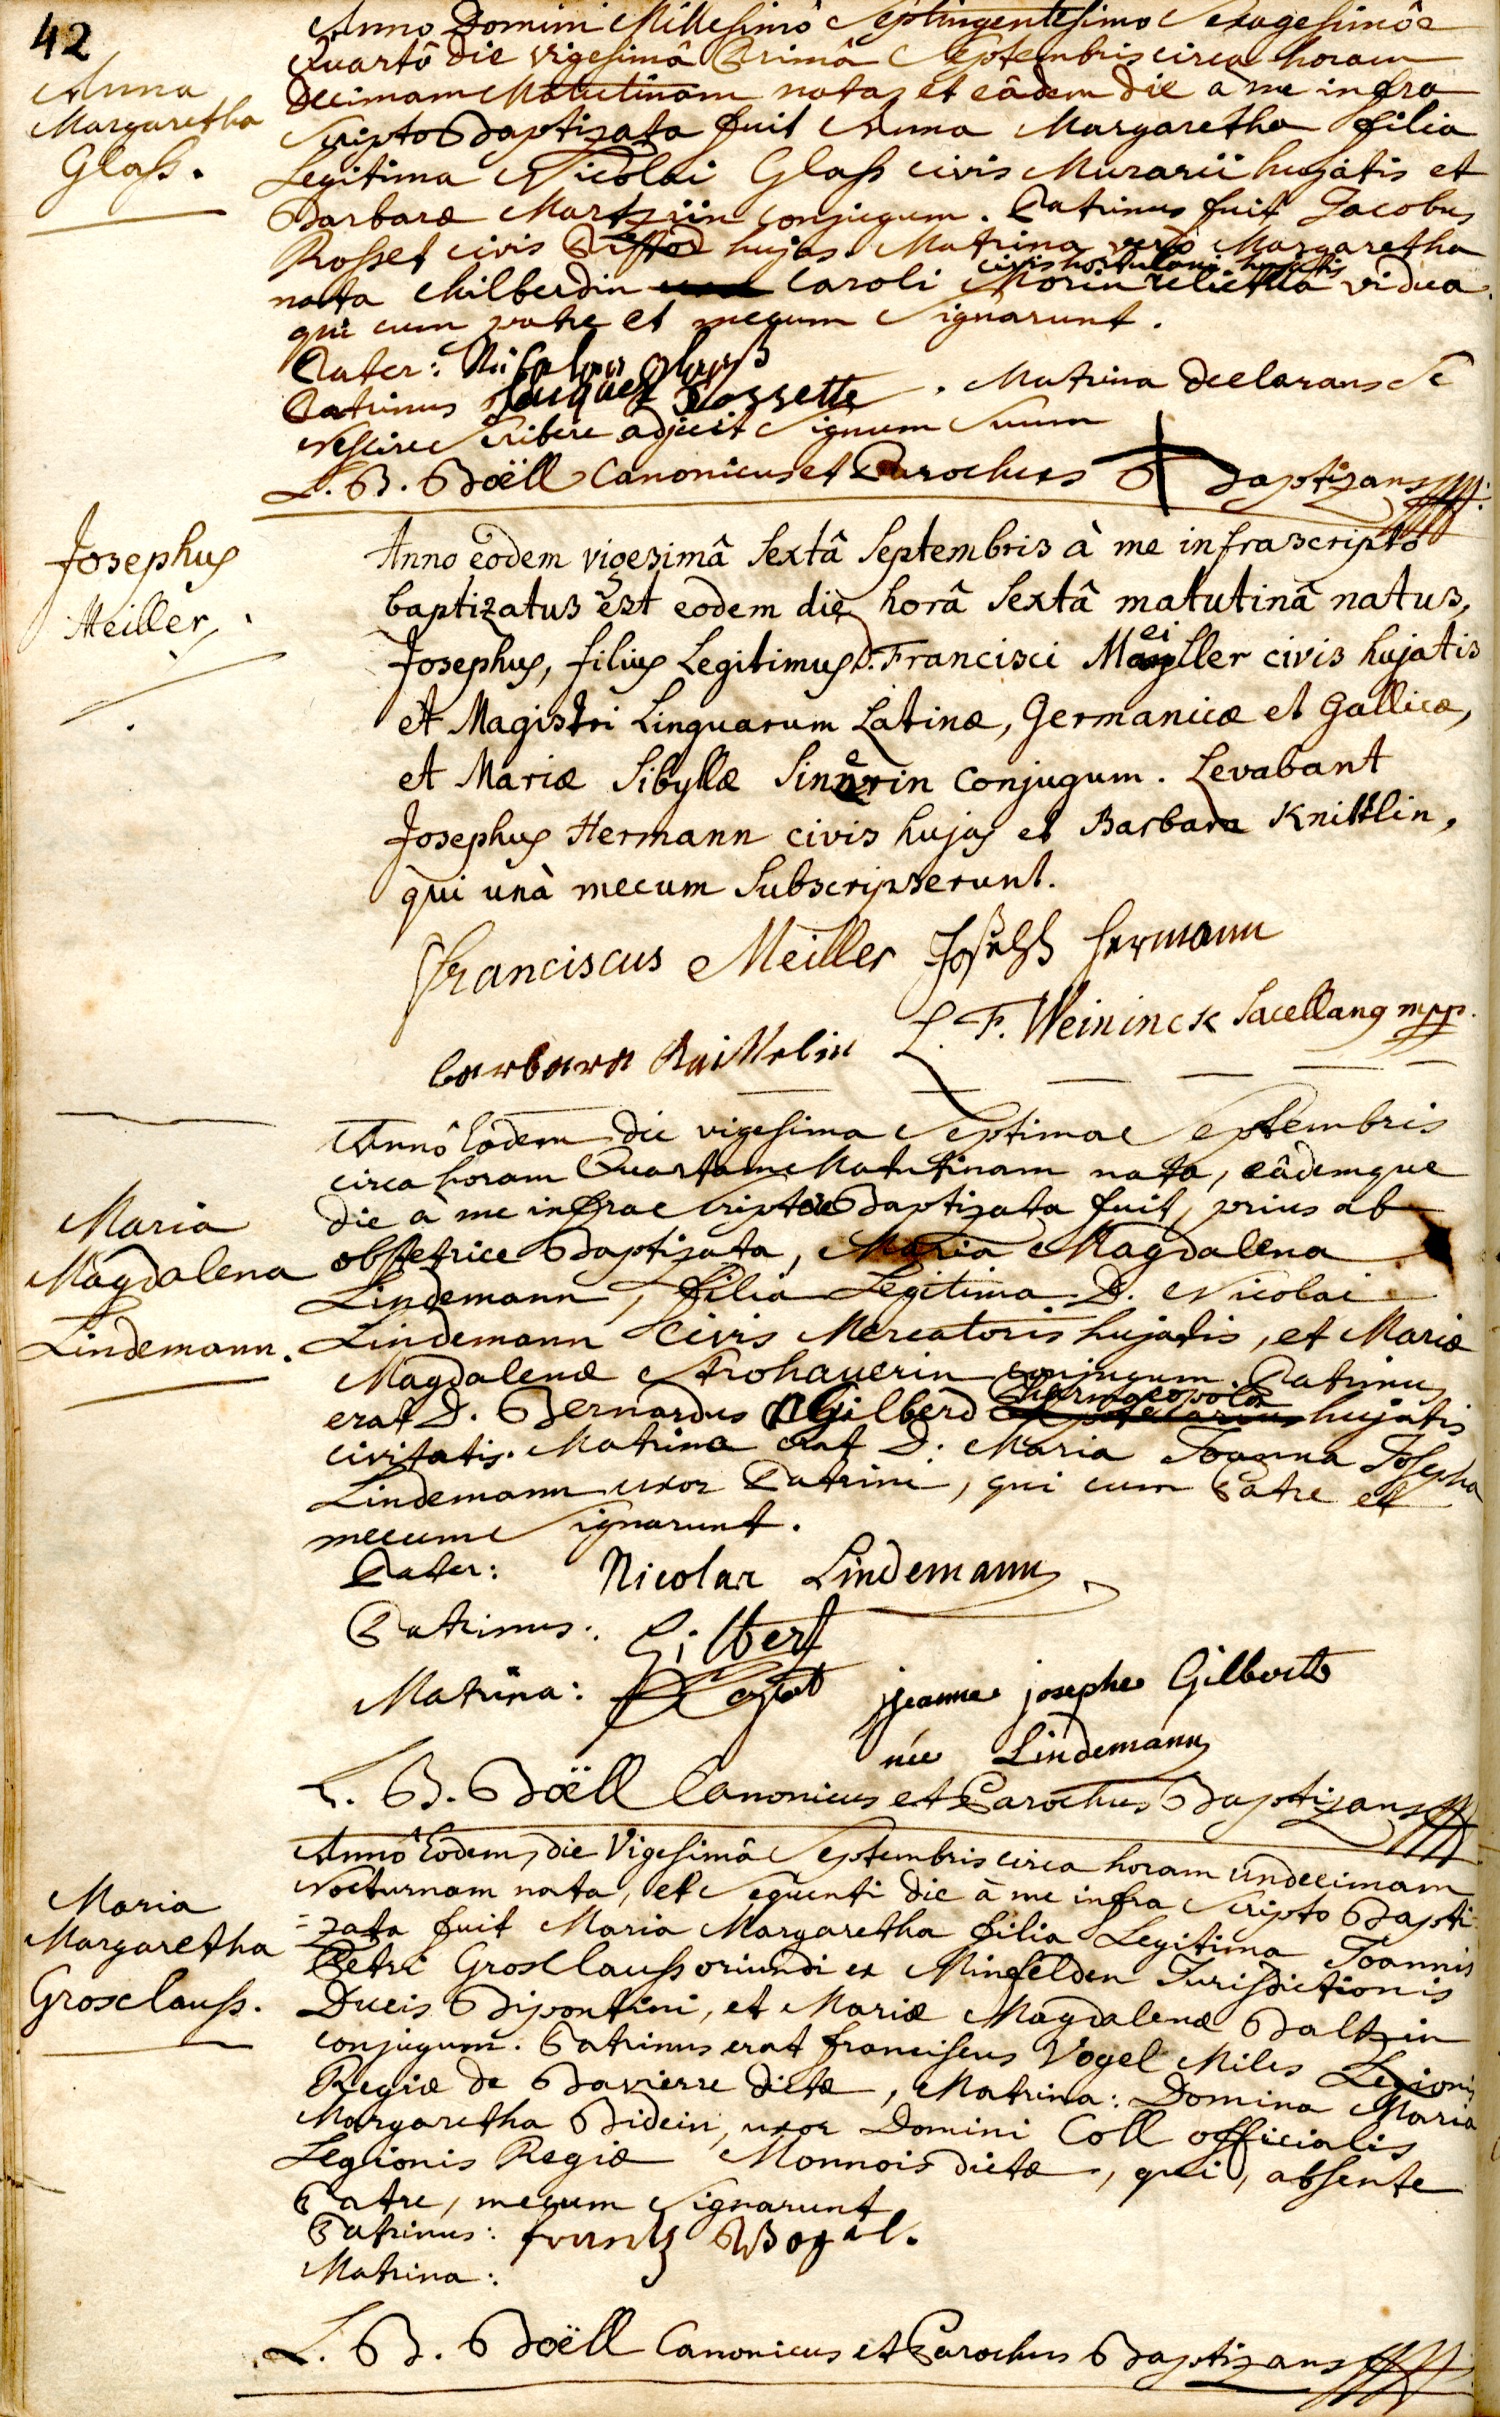 42
Anna
Margaretha
Glass.
Anno Domini Millesimô Septingentesimo Sexagesimô
Quartô die vigesimâ Primâ Septembris circa horam
Decimam Matutinam nata, et eâdem die à me infra
Scripto Baptizata fuit Anna Margaretha filia
Legitima Nicolai Glass civis Murarii hujatis et
Barbaræ Martzin conjugum. Patrinus fuit Jacobus
Rosset civis hujas. Matrina verò Margaretha
civis hortulani hujatis
nata Milberdin Caroli Morin relicta vidua.
qui cum patre et mecum Signarunt.
Pater: Nicolaus Glass
Patrinus Jacques Rossette. Matrina declarans Se
Nescire Scribere adjecit Signum Suum
L. B. Boëll Canonicus et Parochus Baptizans
Josephus
Meiller.
Anno eodem vigesimâ Sextâ Septembris à me infrascripto
baptizatus est eodem die horâ Sextâ matutinâ natus,
Josephus, filius Legitimus D. Francisci Meiller civis hujatis
et Magistri Linguarum Latinæ, Germanicæ et Gallicæ,
et Mariæ Sibyllæ Sinnerin Conjugum. Levabant
Josephus Hermann civis hujas et Barbara Knittlin,
qui unà mecum Subscripserunt.
Franciscus Meiller Joseph Hermann
barbara Knittelin L. F. Weininck Sacellanus mpp.
Maria
Magdalena
Lindemann.
Annô Eodem die vigesima Septima Septembris
circa horam Quartam Matutinam nata, eâdemque
die à me infra Scripto Baptizata fuit, prius ab
obstetrice Baptizata, Maria Magdalena
Lindemann, filia Legitima D. Nicolai
Lindemann Civis Mercatoris hujatis, et Mariæ
Magdalenæ Strohauerin conjugum. Patrinus
erat D. Bernardus Gilberd Pharmacopola hujatis
civitatis. Matrina erat D. Maria Joanna Josepha
Lindemann uxor Patrini, qui cum Patre et
mecum Signarunt.
Pater: Nicolas Lindemann
Patrinus: Gilbert
Matrina: jeanne josephe Gilbert
née Lindemann
L. B. Boëll Canonicus et Parochus Baptizans
Maria
Margaretha
Grosclauss.
Annô Eodem, die Vigesimâ Septembris circa horam undecimam
Nocturnam nata, et Sequenti die à me infra Scripto Bapti-
=zata fuit Maria Margaretha filia Legitima Joannis
Petri Grosclauss oriundi ex Minfelden Jurisdictionis
Ducis Bipontini, et Mariæ Magdalenæ Baltzin
conjugum. Patrinus erat franciscus Vogel Miles Legionis
Regiæ de Bavierre dictæ, Matrina: Domina Maria
Margaretha Bidein, uxor Domini Coll officialis
Legionis Regiæ Monnois dictæ, qui, absente
Patre, mecum Signarunt
Patrinus: frantz Vogel.
Matrina:
L. B. Boëll Canonicus et Parochus Baptizans